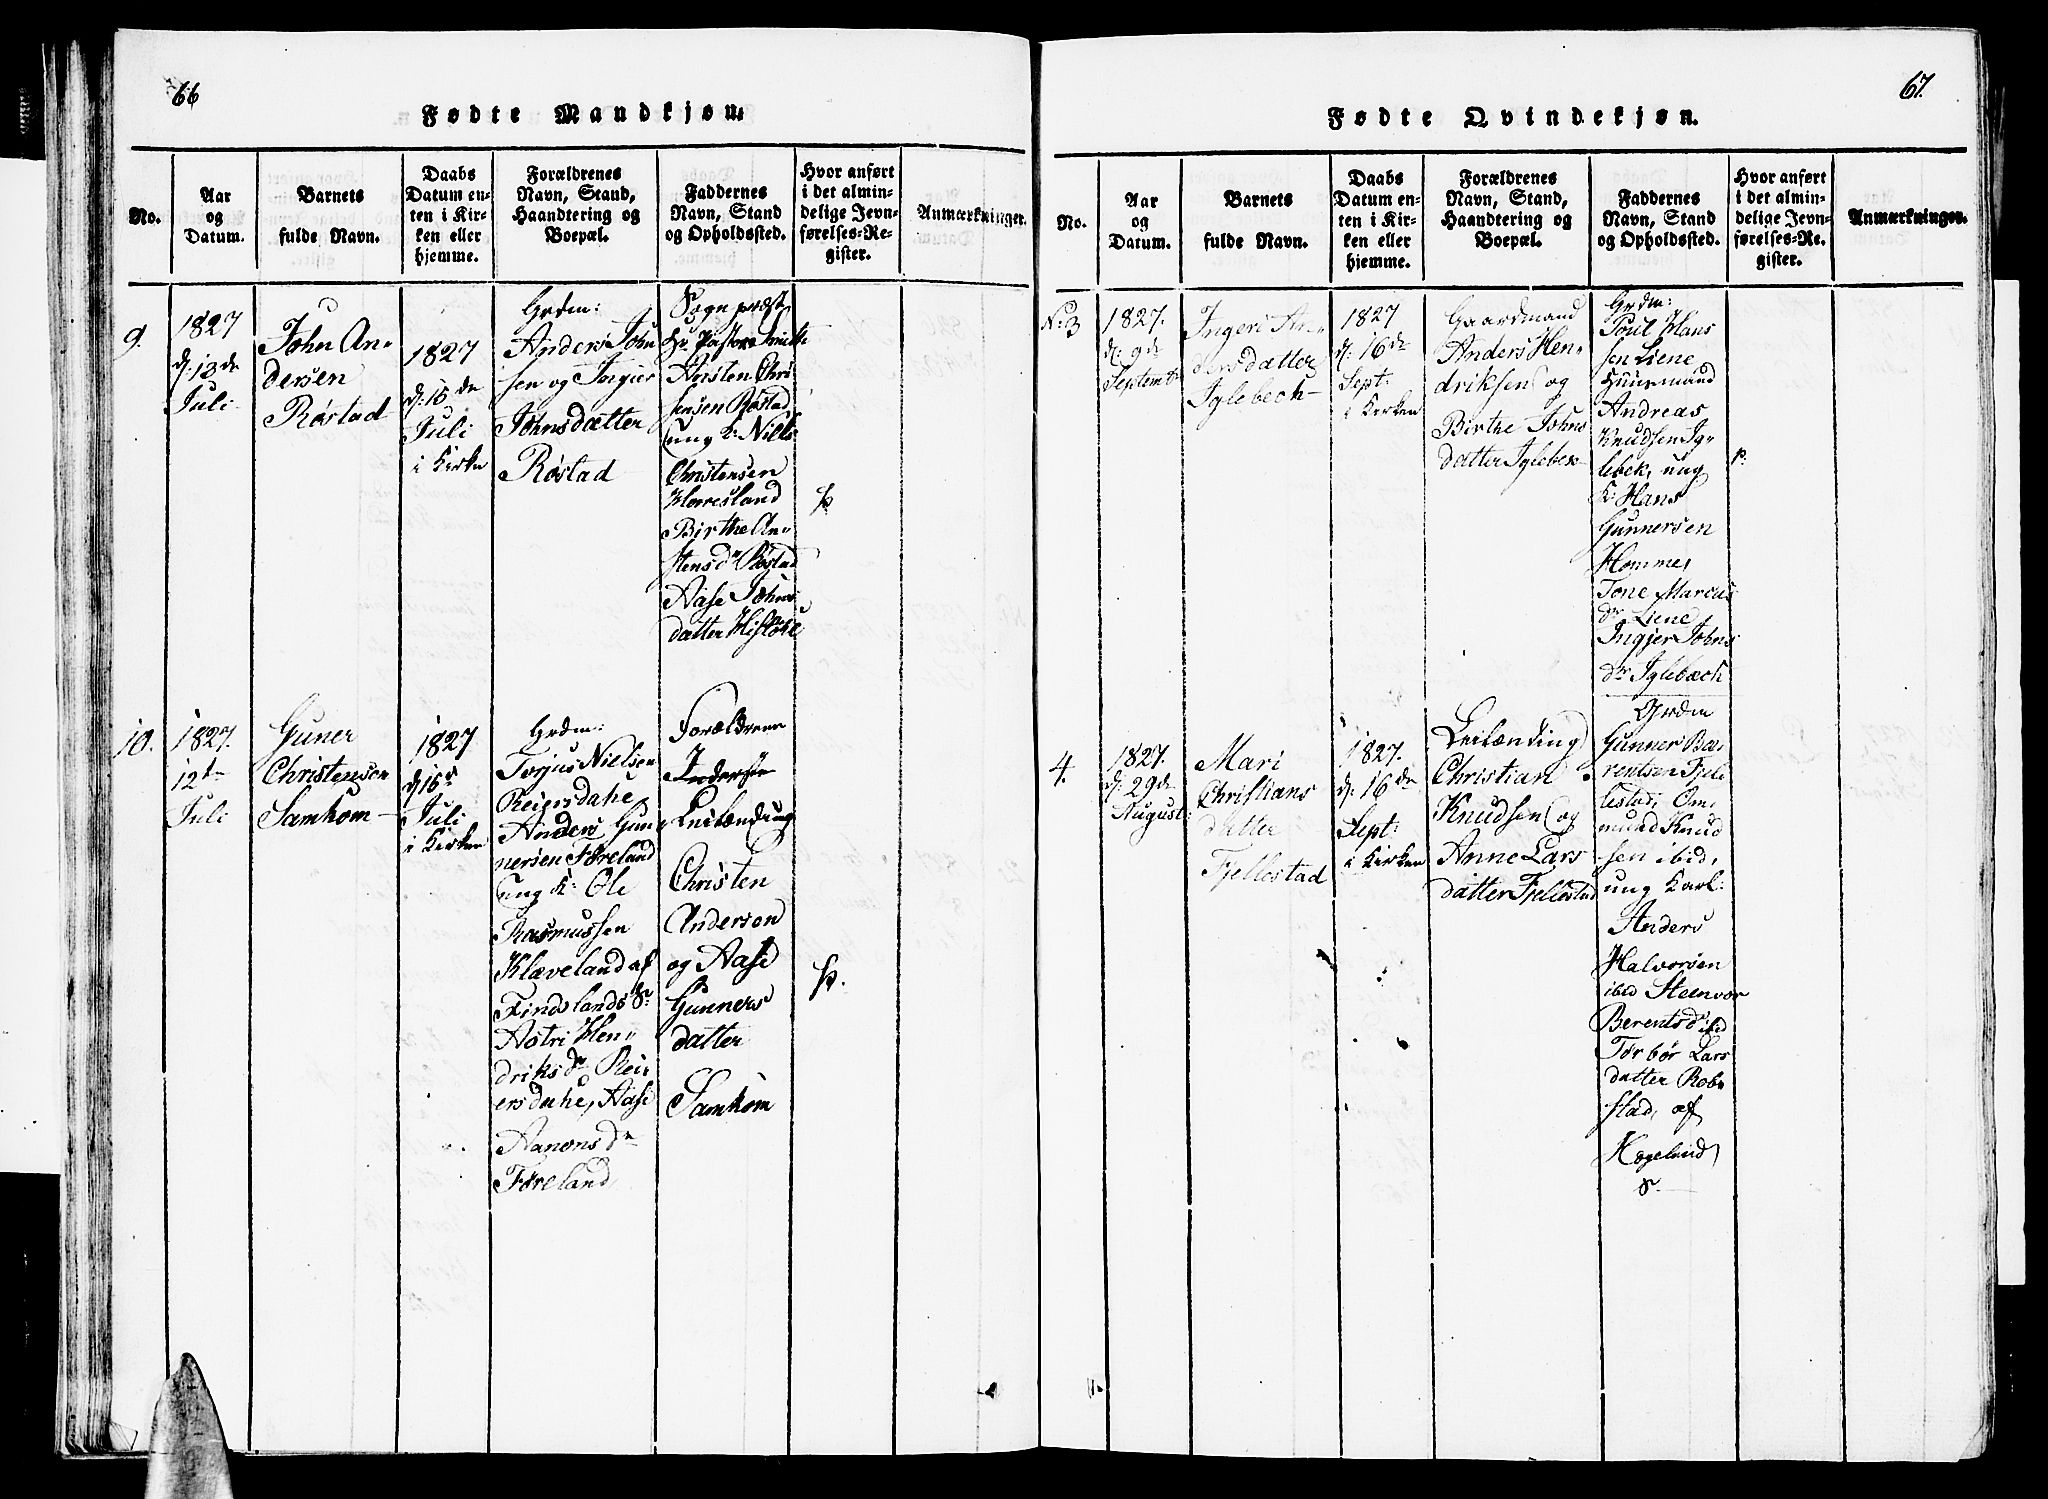 66
Fødte Mandkjøn.
No.
Aar
og
Datum.
Barnets
fulde Navn.
Daabs
Datum en-
ten i Kir-
ken eller
hjemme.
Forældrenes
Navn, Stand,
Haandtering og
Boepæl.
Faddernes
Navn, Stand
og Opholdssted.
Hvor anført
i det almin-
delige Jevn-
førelses-Re-
gister.
Anmærkninger.
9.
1827
d: 13de
Juli
John An-
dersen
Røstad
1827
d: 15de
Juli
i Kirken
Grdm:
Anders John
sen og Ingier
Johnsdatter
Røstad
Sogn præst
Hr Pastor Smith
Arosten Chri
stensen Røstad
ung k: Niels
Christensen
Haaresland
Birthe An-
stensdr Røstad
Aase Johns
datter
þ
10.
1827.
12te
Juli
Guner
Christensen
Samkom
1827
d 15de
Juli
i Kirken
Grdm:
Torjus Nielsen
Reiersdahe
Anders Gun
nersen Føreland
ung K: Ole
Rasmussen
Klæveland af
Findslands S:
Astri Hen-
driks dr Rei-
ersdahe, Aase
Aanons dr
Føreland
Forældrene
Inderste
Leilænding
Christen
Anderson
og Aase
Gunners
datter
Samkom
þ.
67.
Fødte Qvindekjøn.
No.
Aar
og
Datum.
Barnets
fulde Navn.
Daabs
Datum en-
ten i Kir-
ken eller
hjemme.
Forældrenes
Navn, Stand,
Haandtering og
Boepæl.
Faddernes
Navn, Stand
og Opholdssted.
Hvor anført
i det almin-
delige Jevn-
førelses-Re-
gister.
Anmærkninger.
No: 3
1827.
d: 9de
Septemb:
Ingeri An-
dersdatter
Iglebech
1827
d: 16de
Sept:
i Kirken
Gaardmand
Anders Hen-
driksen og
Birthe Johns
datter Iglebek
Grdm:
Poul Hans
sen Liene
Huusmand
Andreas
Knudsen Ig-
lebek, ung
K: Hans
Gunnersen
Homme,
Tone Marcus
dr Liene
Ingjer Johns
dr Iglebæck
þ:
4.
1827.
d: 29de
August:
Mari
Christians
datter
Fjellestad
1827.
d: 16de
Sept:
i Kirken
Leilænding
Christian
Knudsen og
Anne Lars
datter Fjellestad
Grdm
Gunner Be-
rentsen Fjel
lestad, Om,
mund Knud
sen ibid,
ung Karl:
Anders
Halvorsen
ibid Steenvor
Berentsdr ibid
Torbør Lars
datter Rob-
stad, af
Hægeland
S.